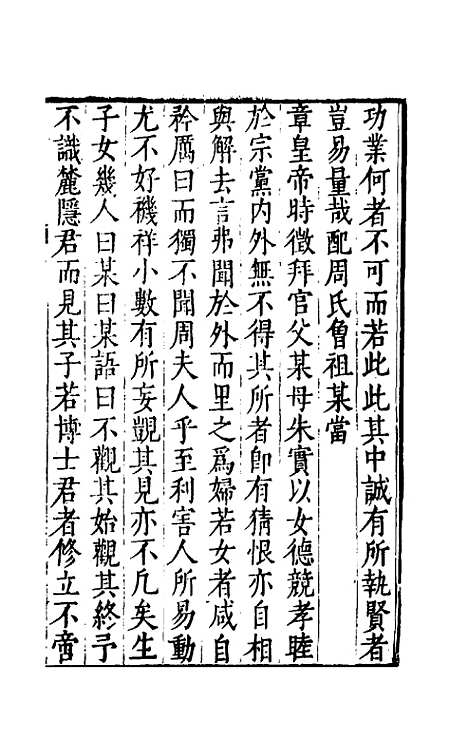 功業何者不可而若此此其中誠有所執賢者
豈易量哉配周氏曾祖某當
章皇帝時徵拜官父某母朱實以女德競孝睦
於宗黨内外無不得其所者即有猜恨亦自相
與解去言弗聞於外而里之為婦若女者咸自
矜厲曰而獨不聞周夫人乎至利害人所易動
尤不好禨祥小數有所妄覬其見亦不凡矣生
子女幾人曰某曰某語曰不觀其始觀其終予
不識麓隱君而見其子若博士君者修立不啻